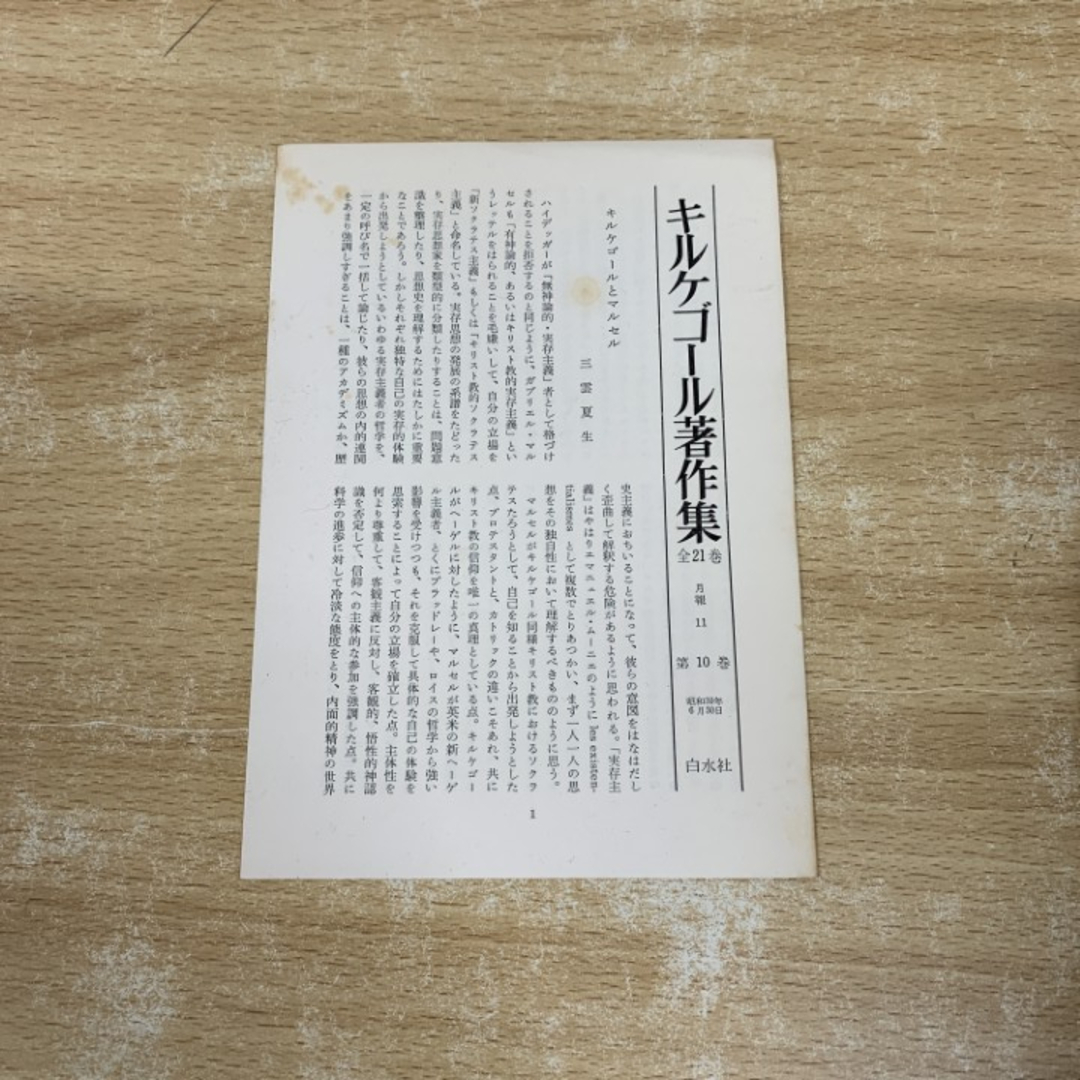 キルケゴール著作集
全21巻
月報 11
第10巻
昭和39年
6月30日
白水社
キルケゴールとマルセル
三雲夏生
ハイデッガーが「無神論的・実存主義」者として格づけ
されることを拒否するのと同じように、ガブリエル・マル
セルも「有神論的、あるいはキリスト教的実存主義」とい
うレッテルをはられることを毛嫌いして、自分の立場を
「新ソクラテス主義」もしくは「キリスト教的ソクラテス
主義」と命名している。実存思想の発展の系譜をたどった
り、実存思想家を類型的に分類したりすることは、問題意
識を整理したり、思想史を理解するためにはたしかに重要
なことであろう。しかしそれぞれ独特な自己の実存的体験
から出発しようとしているいわゆる実存主義者の哲学を、
一定の呼び名で一括して論じたり、彼らの思想の内的連関
をあまり強調しすぎることは、一種のアカデミズムか、歴
史主義におちいることになって、彼らの意図をはなはだし
く歪曲して解釈する危険があるように思われる。「実存主
義」はやはりエマニュエル・ムーニエのように les existen-
tialismes として複数でとりあつかい、まず一人一人の思
想をその独自性において理解するべきもののように思う。
マルセルがキルケゴール同様キリスト教におけるソクラ
テスたろうとして、自己を知ることから出発しようとした
点、プロテスタントと、カトリックの違いこそあれ、共に
キリスト教の信仰を唯一の真理としている点。キルケゴー
ルがヘーゲルに対したように、マルセルが英米の新ヘーゲ
ル主義者、とくにブラッドレーや、ロイスの哲学から強い
影響を受けつつも、それを克服して具体的な自己の体験を
思索することによって自分の立場を確立した点。主体性を
何より尊重して、客観主義に反対し、客観的、悟性的神認
識を否定して、信仰への主体的な参加を強調した点。共に
科学の進歩に対して冷淡な態度をとり、内面的精神の世界
1